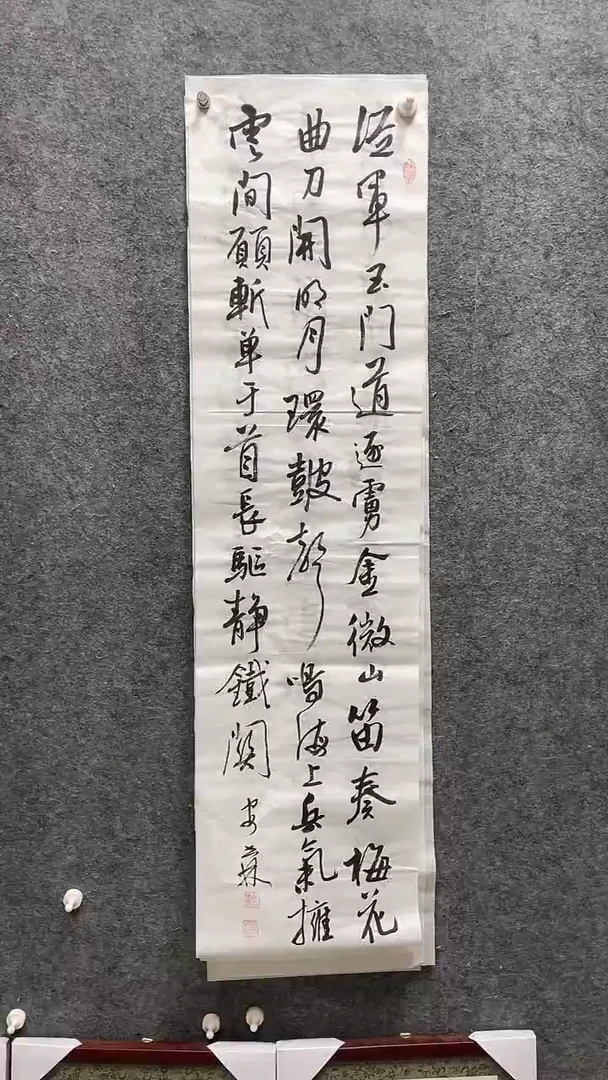 從軍玉門道逐虜金微山笛奏梅花
曲刀開明月環皷聲鳴海上兵氣擁
雲間願斬单于首長驅静鐵関